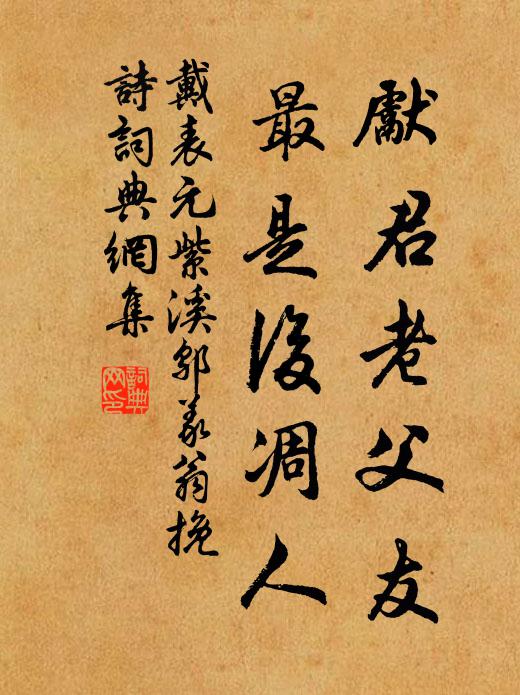 獻君老父友
最是後凋人
戴表元紫溪鄔義翁挽
詩詞典網集
詞典
网印